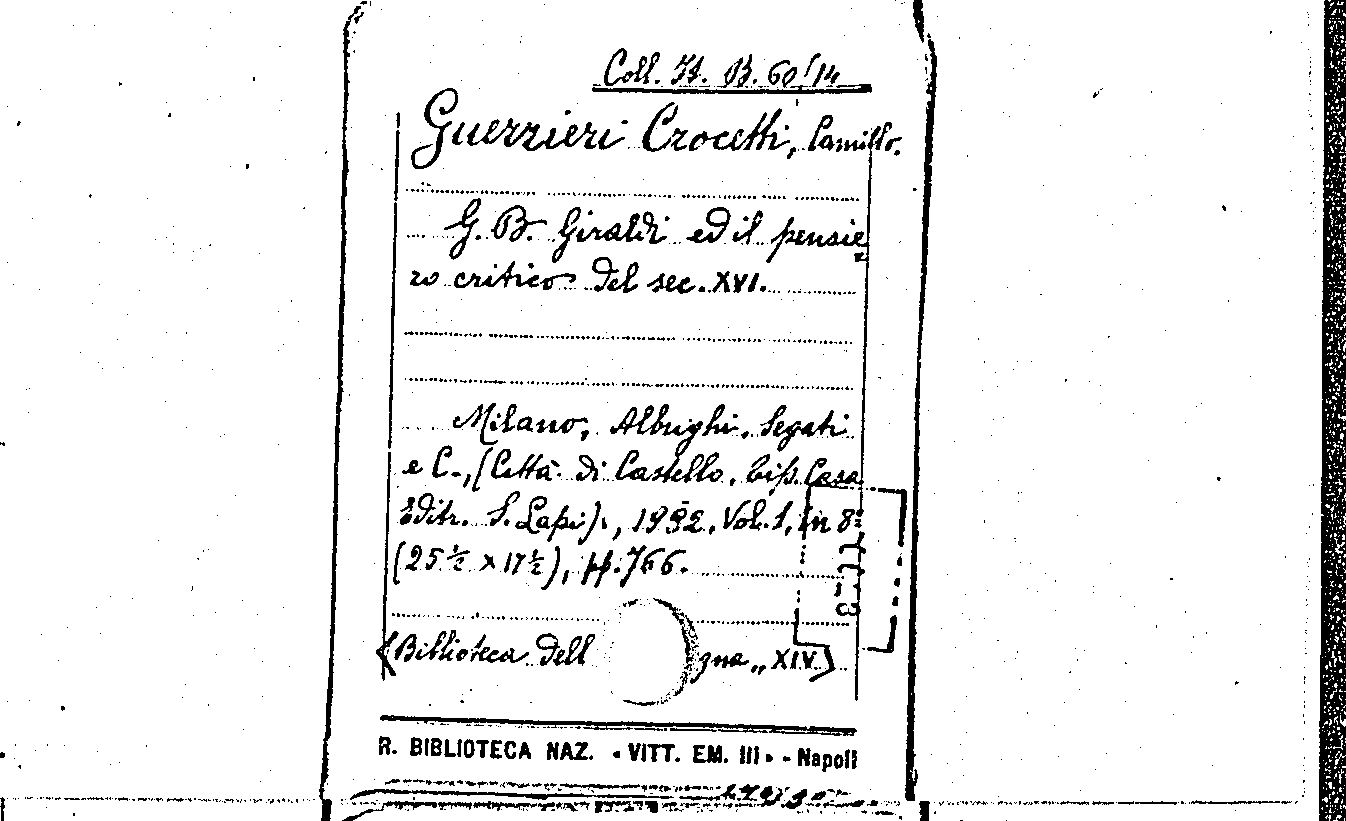 Coll. It. B. 60/14
Guerrieri Crocetti, Camillo.
G. B. Giraldi ed il pensie
ro critico del sec. XVI.
Milano, Albrighi, Segati
e C., (Città di Castello, tip. Casa
Editr. S. Lapi), 1932, Vol. 1, in 8º
(25 ½ x 17 ½), pp. 766.
(Biblioteca dell gna „ XIV)
R. BIBLIOTECA NAZ. « VITT. EM. III » - Napoli